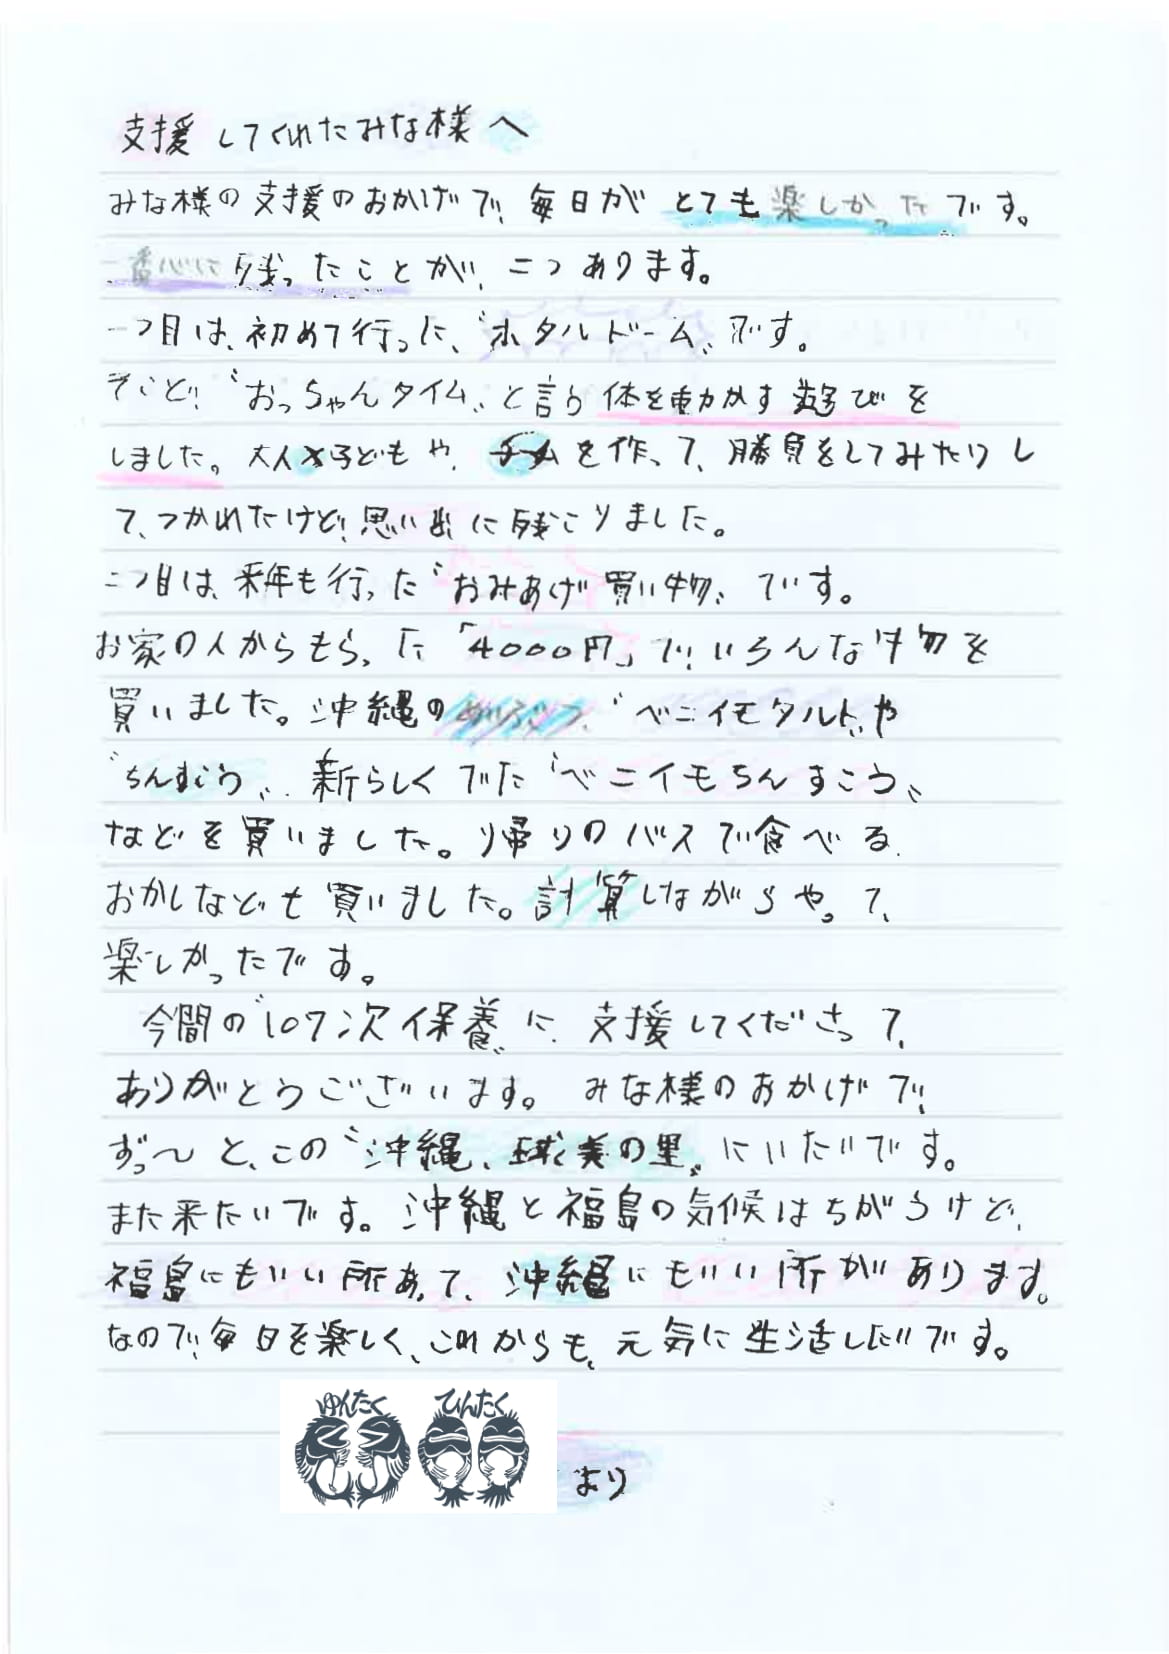 支援してくれたみな様へ
みな様の支援のおかげで、毎日がとても楽しかったです。
一番心に残ったことが、二つあります。
一つ目は、初めて行った、〝ホタルドーム〟です。
そこで、〝おっちゃんタイム〟と言う体を動かす遊びを
しました。大人×子どもや、チームを作って、勝負をしてみたりし
て、つかれたけど、思い出に残こりました。
二つ目は、来年も行った〝おみあげ買い物〟です。
お家の人からもらった「4000円」で、いろんな物を
買いました。沖縄のめいぶつ、〝ベニイモタルト〟や
〝ちんすこう〟、新らしくでた〝ベニイモちんすこう〟
などを買いました。帰りのバスで食べる
おかしなども買いました。計算しながらやって、
楽しかったです。
今間の〝107次保養〟に、支援してくださって、
ありがとうございます。みな様のおかげで、
ずっ〜と、この〝沖縄、球美の里〟にいたいです。
また来たいです。沖縄と福島の気候はちがうけど、
福島にもいい所あって、沖縄にもいい所があります。
なので、毎日を楽しく、これからも、元気に生活したいです。
ゆんたく ひんたく
より